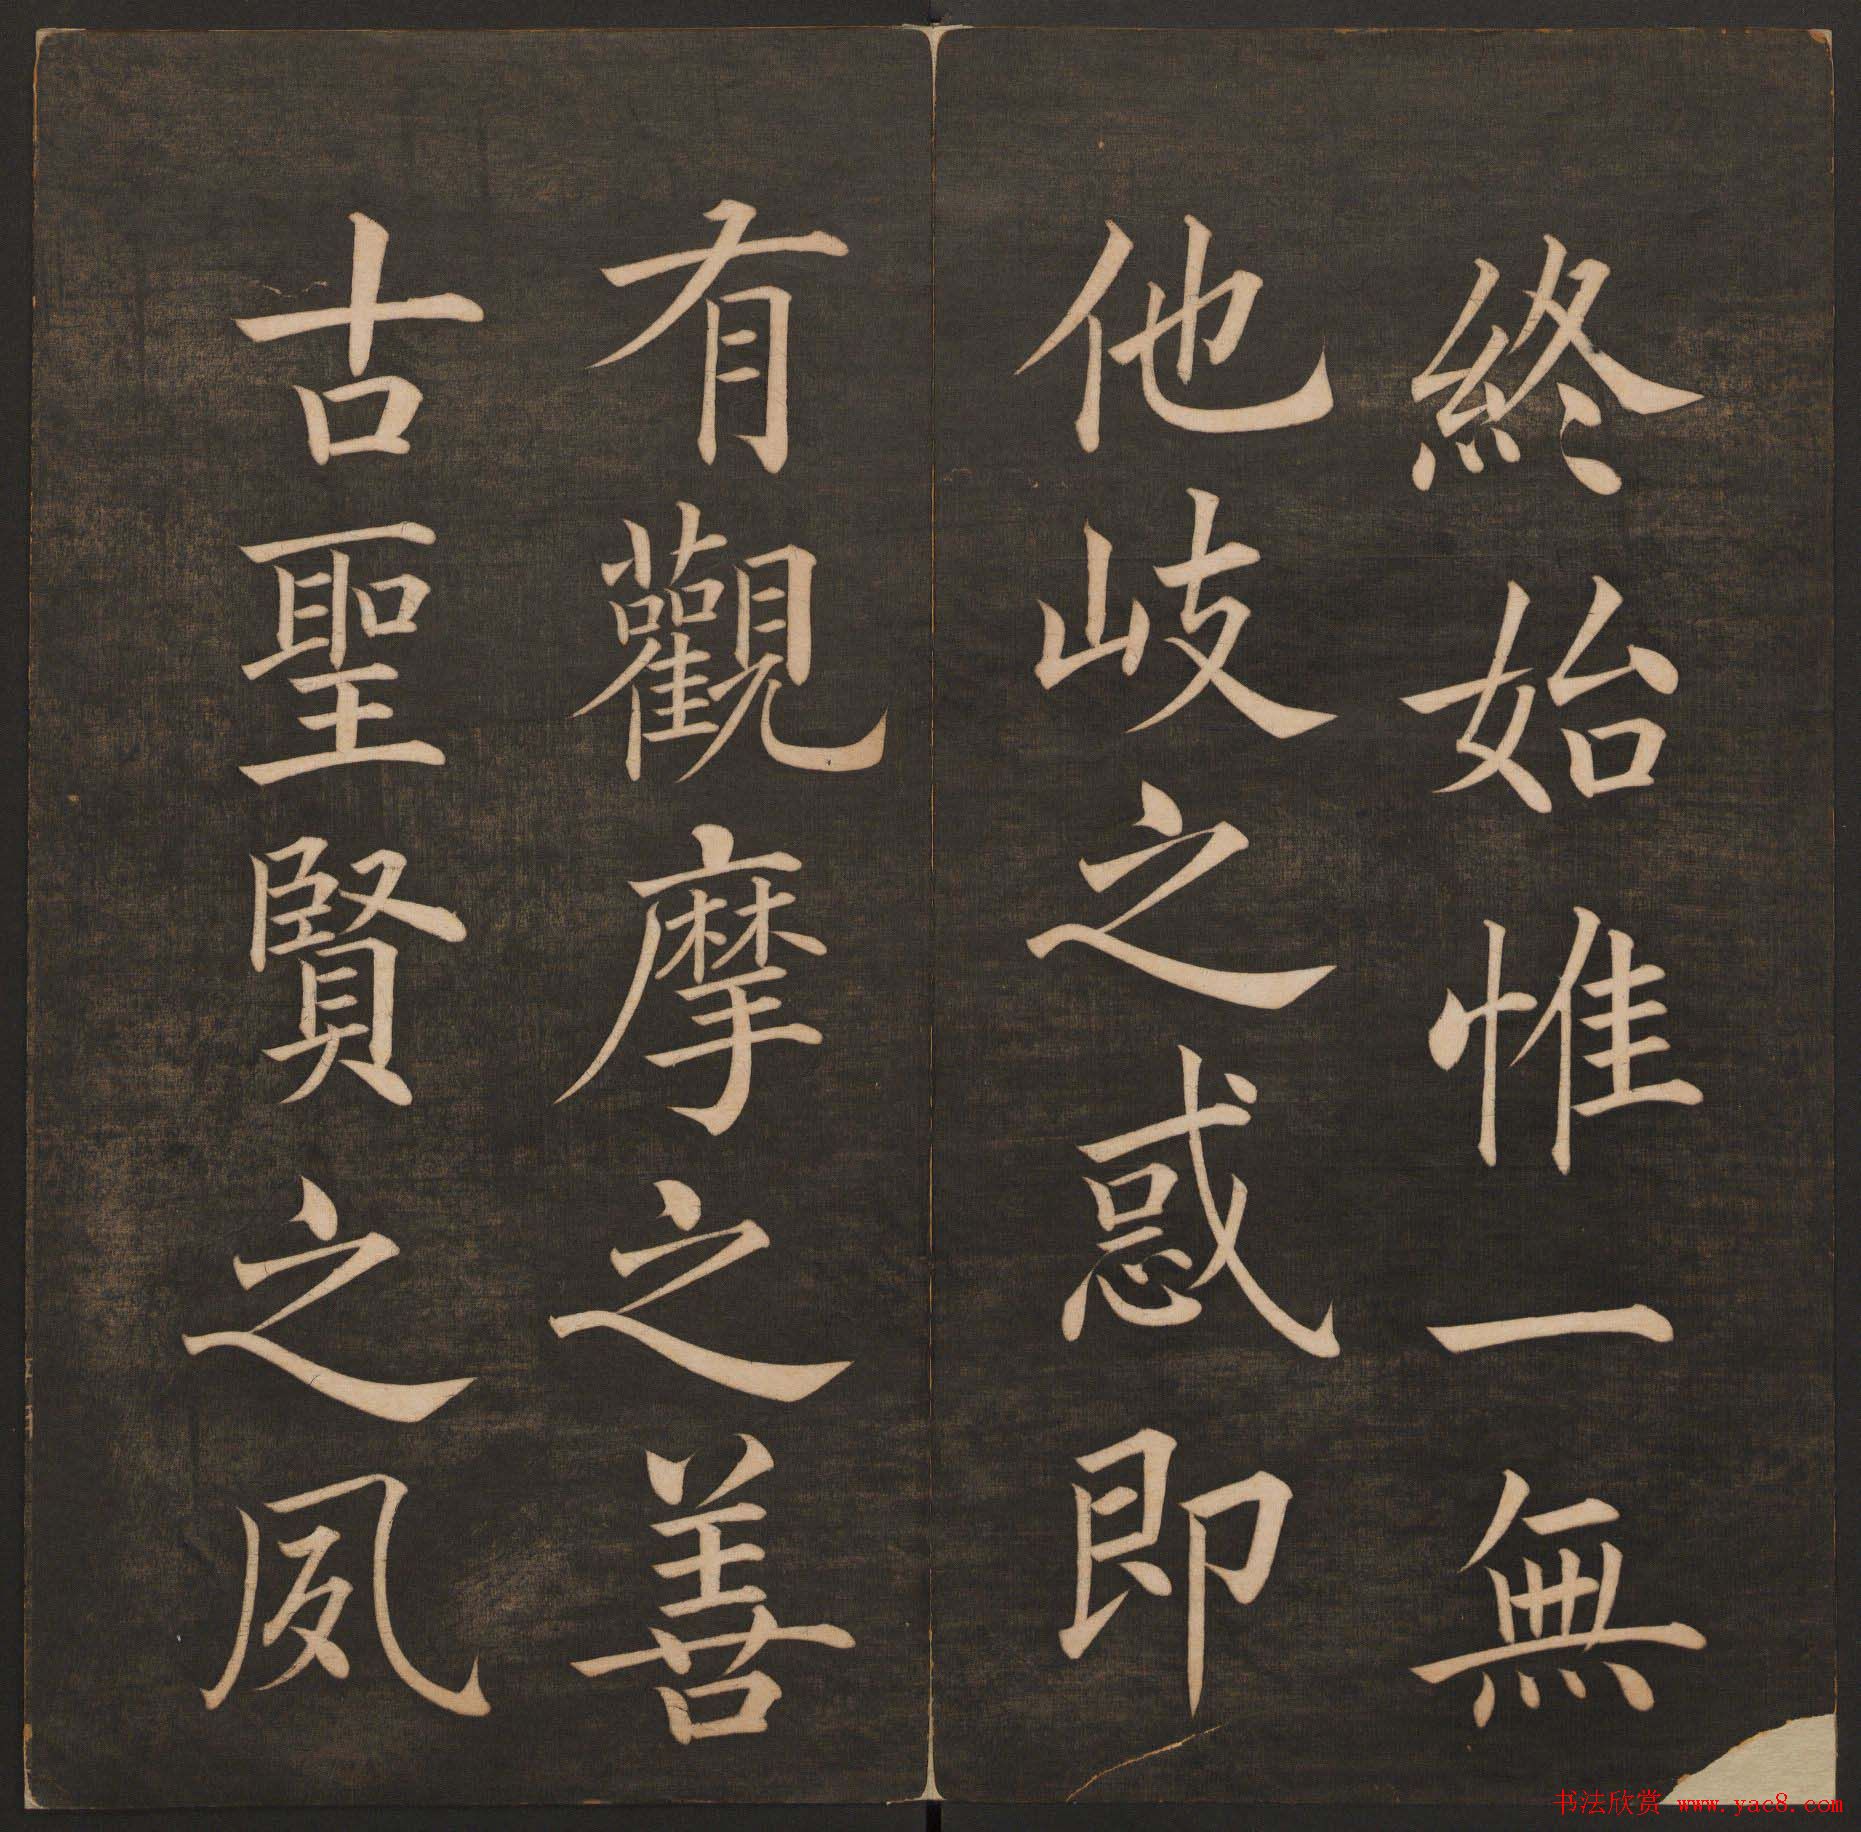 終始惟一無
他歧之惑即
有觀摩之善
古聖賢之夙
书法欣赏 www.yac8.com